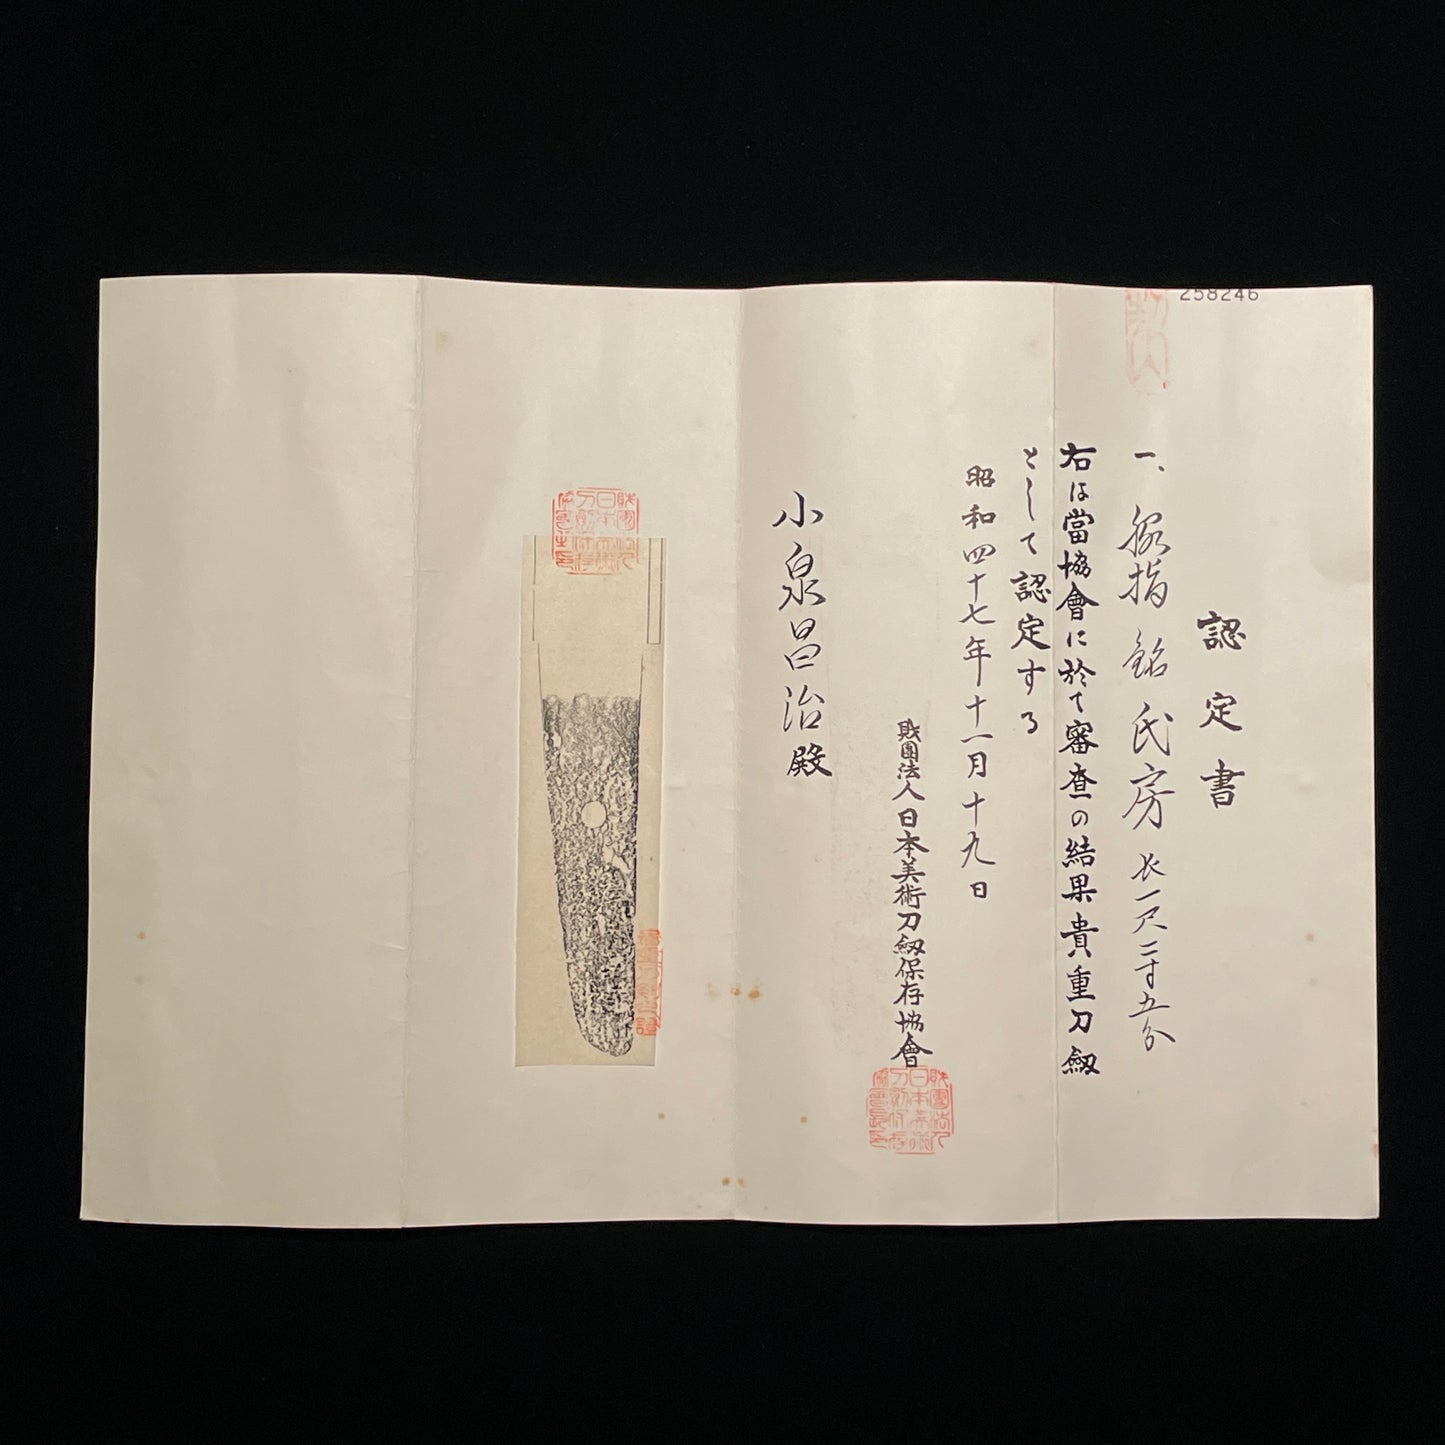 258246
認定書
一、脇指 銘 氏房 长一尺二寸五分
右は當協會に於て審査の結果貴重刀剱
として認定する
昭和四十七年十一月十九日
財團法人日本美術刀剱保存協會
小泉昌治殿